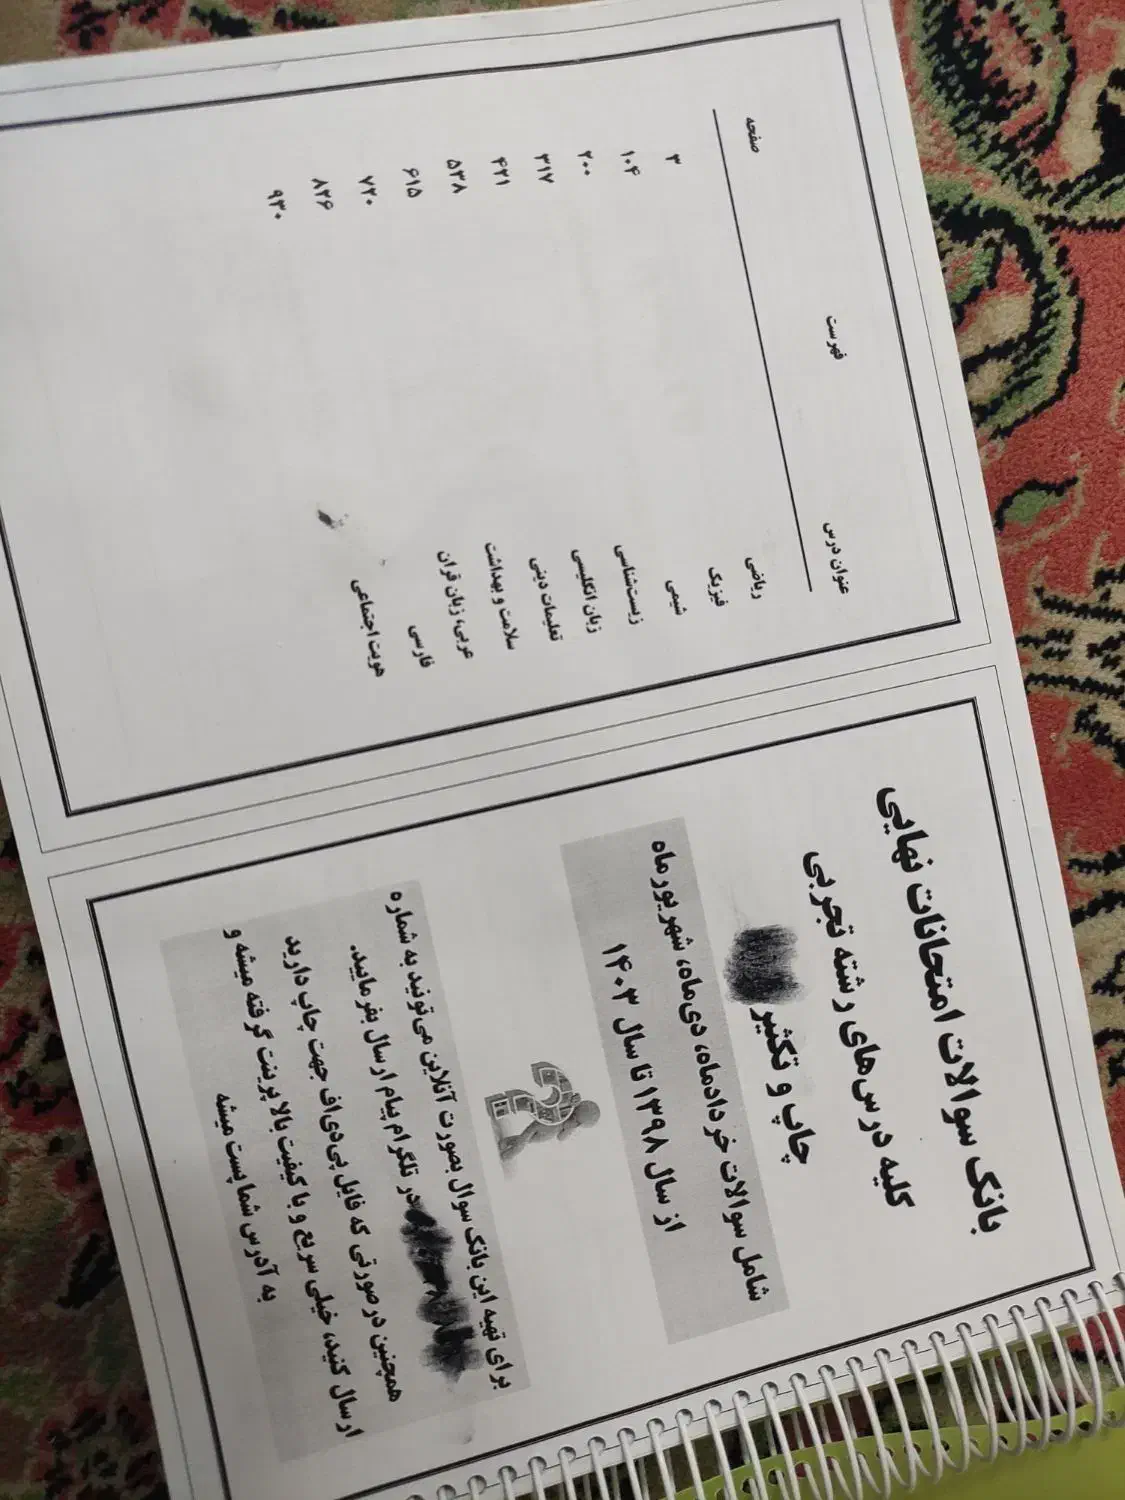 بانک سوالات امتحانات نهایی
کلیه درس‌های رشته تجربی
چاپ و تکثیر
شامل سوالات خردادماه، دی‌ماه، شهریورماه
از سال ۱۳۹۸ تا سال ۱۴۰۳
برای تهیه این بانک سوال بصورت آنلاین می‌تونید به شماره
در تلگرام پیام ارسال بفرمایید.
همچنین در صورتی که فایل پی‌دی‌اف جهت چاپ دارید
ارسال کنید، خیلی سریع و با کیفیت بالا پرینت گرفته میشه و
به آدرس شما پست میشه
فهرست
عنوان درس صفحه
ریاضی ۳
فیزیک ۱۰۴
شیمی ۲۰۰
زیست‌شناسی ۳۱۷
زبان انگلیسی ۴۲۱
تعلیمات دینی ۵۳۸
سلامت و بهداشت ۶۱۵
عربی، زبان قرآن ۷۲۰
فارسی ۸۲۶
هویت اجتماعی ۹۳۰